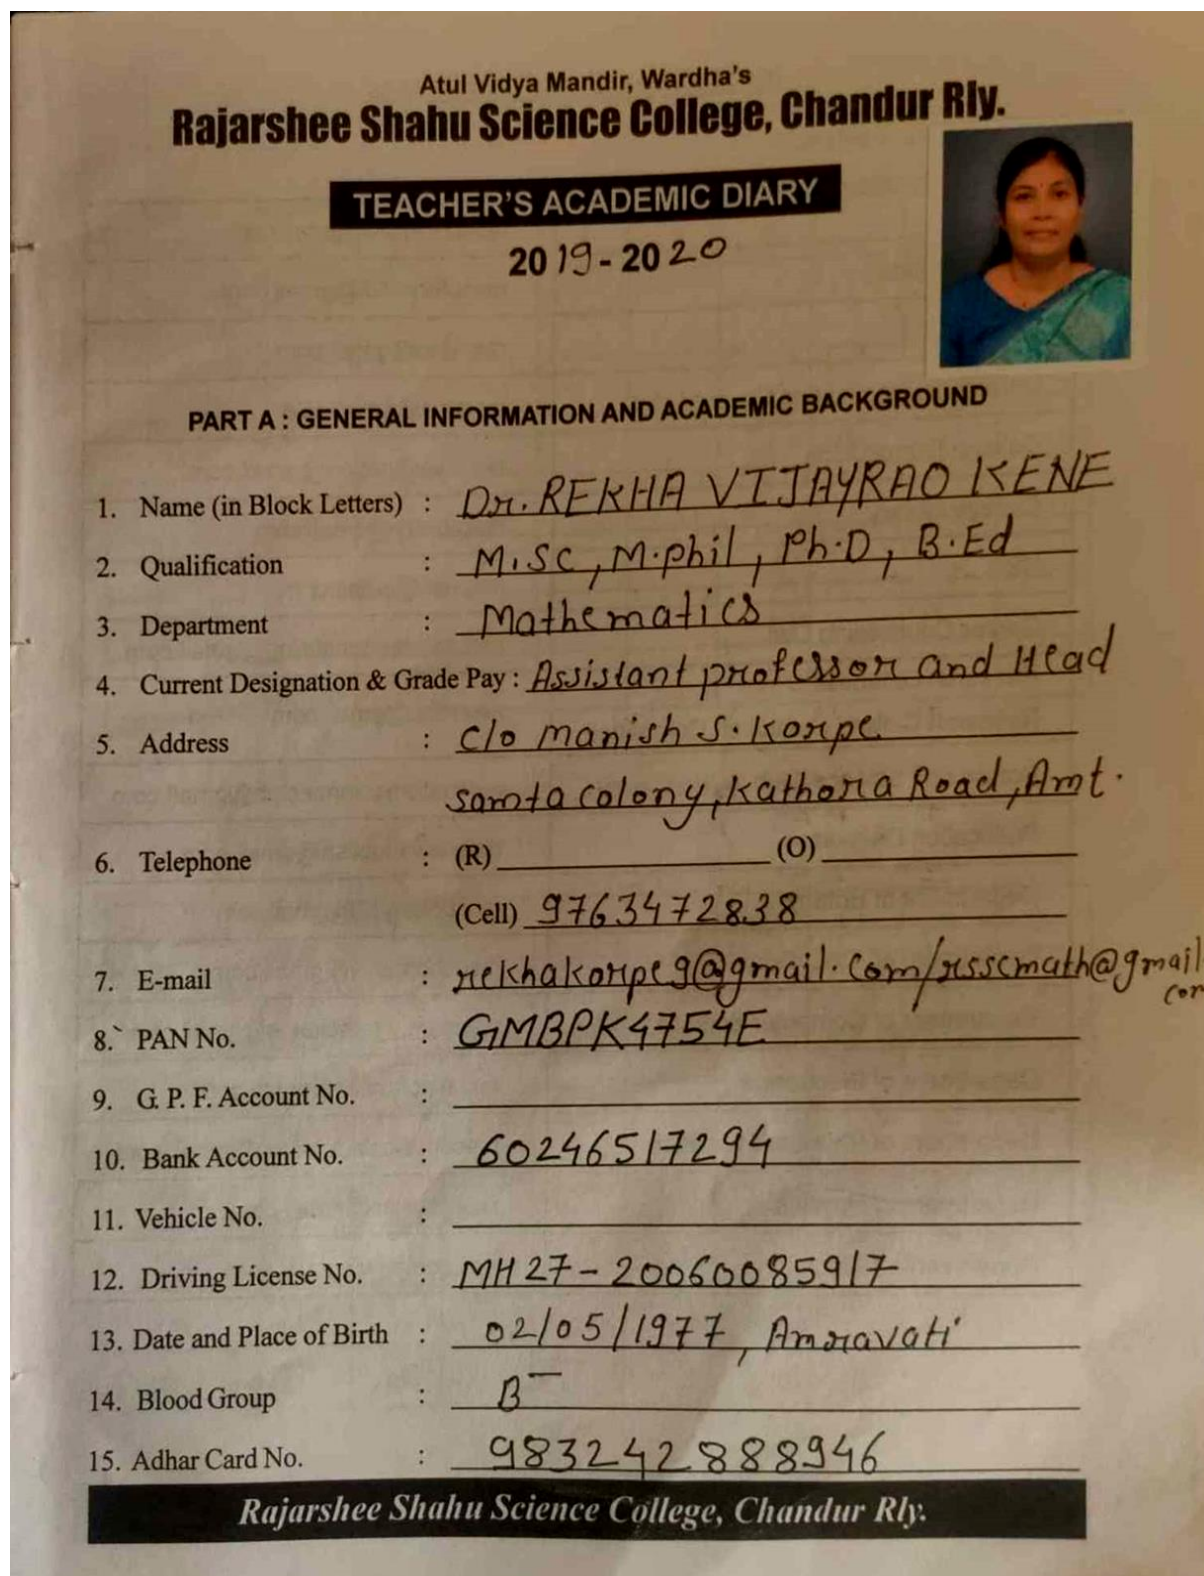 Atul Vidya Mandir, Wardha's
Rajarshee Shahu Science College, Chandur Rly.
TEACHER'S ACADEMIC DIARY
2019-2020
PART A : GENERAL INFORMATION AND ACADEMIC BACKGROUND
1. Name (in Block Letters) : Dr. REKHA VIJAYRAO KENE
2. Qualification : M.SC, M.phil, Ph.D, B.Ed
3. Department : Mathematics
4. Current Designation & Grade Pay : Assistant professor and Head
5. Address : C/o Manish S. Korpe
samta colony, Kathora Road, Amt.
6. Telephone : (R) (O)
(Cell) 9763472838
7. E-mail : rekhakorpe9@gmail.com/rsscmath@gmail.
com
8. PAN No. : GMBPK4754E
9. G. P. F. Account No. :
10. Bank Account No. : 60246517294
11. Vehicle No. :
12. Driving License No. : MH27-20060085917
13. Date and Place of Birth : 02/05/1977, Amravati
14. Blood Group : B-
15. Adhar Card No. : 983242888946
Rajarshee Shahu Science College, Chandur Rly.